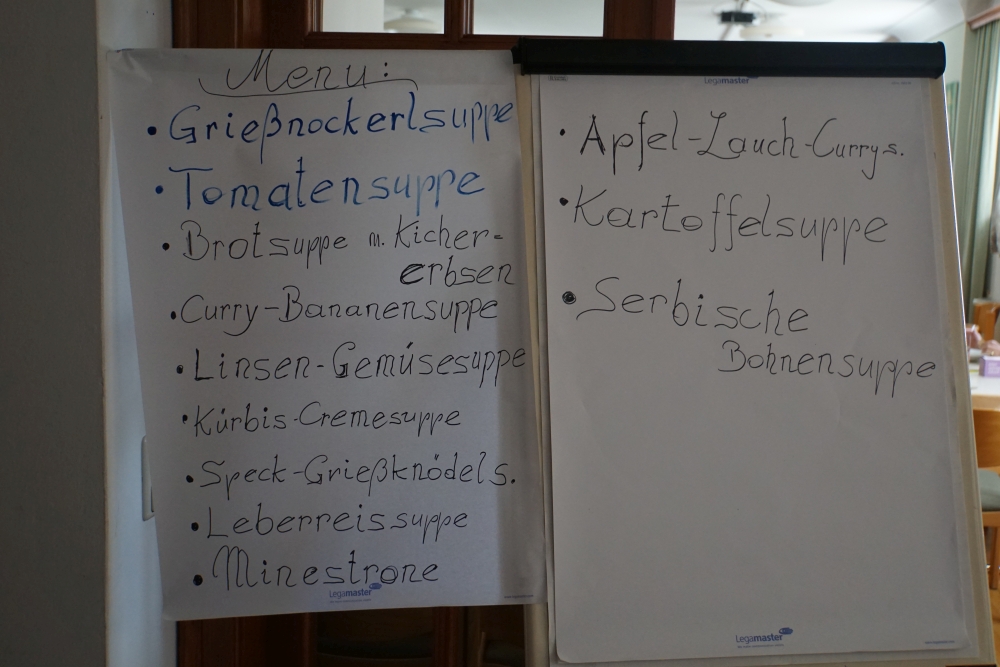 Menu:
• Grießnockerlsuppe
• Tomatensuppe
• Brotsuppe m. Kicher-
erbsen
• Curry-Bananensuppe
• Linsen-Gemüsesuppe
• Kürbis-Cremesuppe
• Speck-Grießknödels.
• Leberreissuppe
• Minestrone
Legamaster
Legamaster
• Apfel-Lauch-Currys.
• Kartoffelsuppe
• Serbische
Bohnensuppe
Legamaster